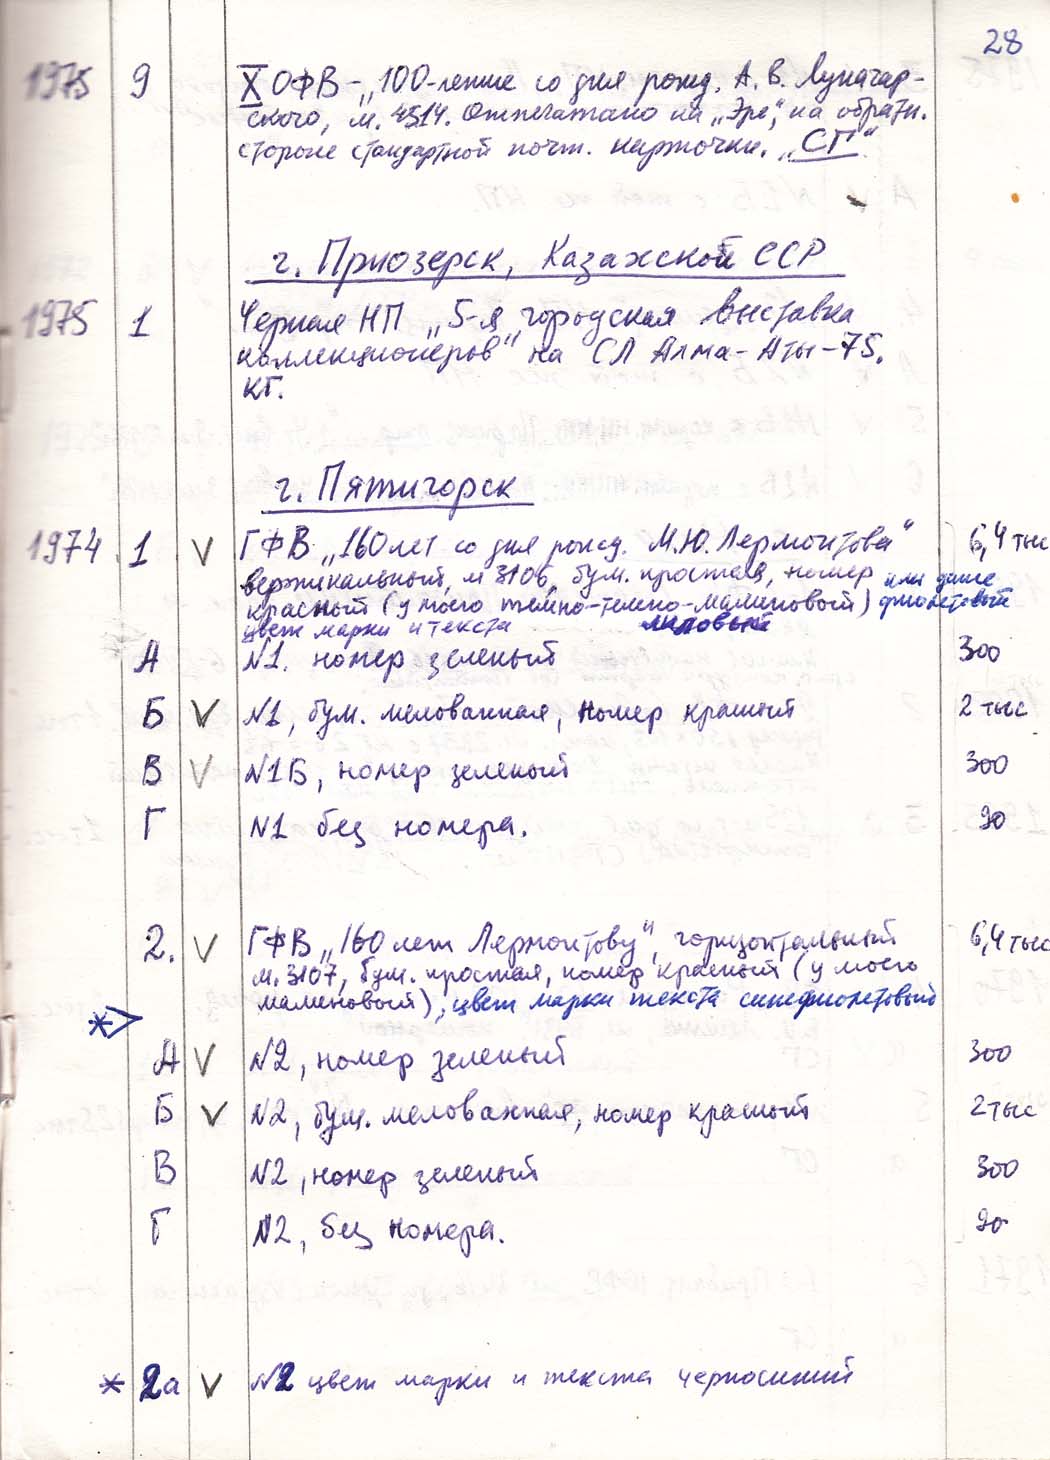 28
1975 9 X ОФВ - „100-летие со дня рожд. А. В. Луначар-
ского, м. 4514. Отпечатано на „Эре", на обратн.
стороне стандартной почт. карточки. „СГ"
г. Приозерск, Казахской ССР
1975 1 Черная НП „5-я городская выставка
коллекционеров" на СЛ Алма-Аты-75.
КГ.
г. Пятигорск
1974 1 V ГФВ „160 лет со дня рожд. М.Ю. Лермонтова" 6,4 тыс
вертикальный, м 3106, бум. простая, номер или даже
красный (у моего темно-темно-малиновый) фиолетовый
цвет марки и текста лиловый
А N1. номер зеленый 300
Б V N1, бум. мелованная, номер красный 2 тыс
В V N1Б, номер зеленый 300
Г N1 без номера. 90
2. V ГФВ „160 лет Лермонтову", горизонтальный 6,4 тыс
м. 3107, бум. простая, номер красный (у моего
малиновый), цвет марки текста синефиолетовый
*>
А V N2, номер зеленый 300
Б V N2, бум. мелованная, номер красный 2 тыс
В N2, номер зеленый 300
Г N2, без номера. 90
* 2а V N2 цвет марки и текста черносиний